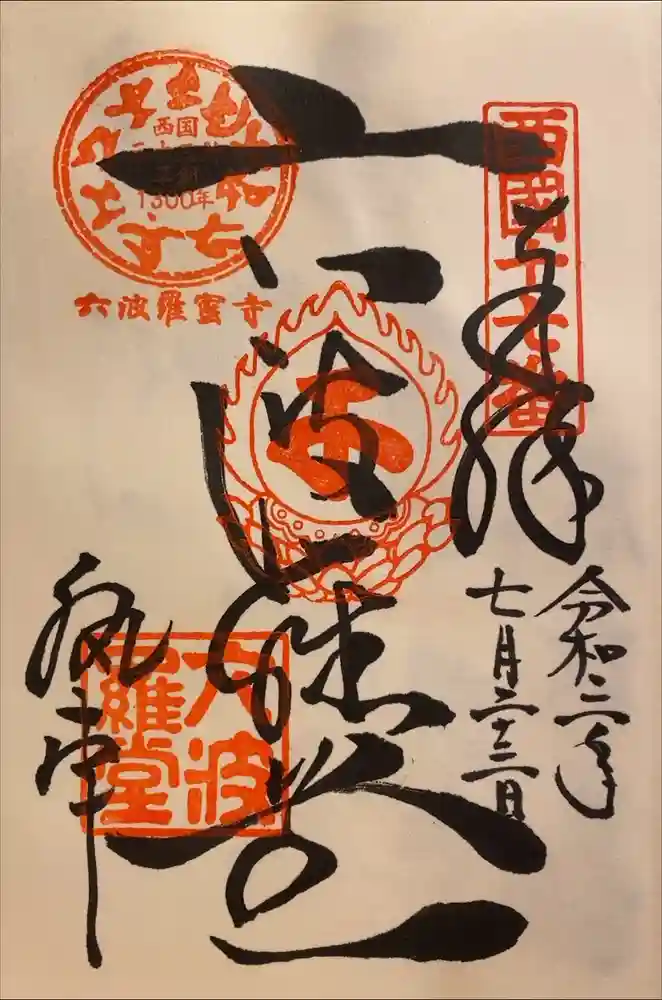 西國十七番
奉拝
令和二年
七月二十三日
六波羅堂
西国
三十三所
草創
1300年
六波羅蜜寺
六波
羅堂